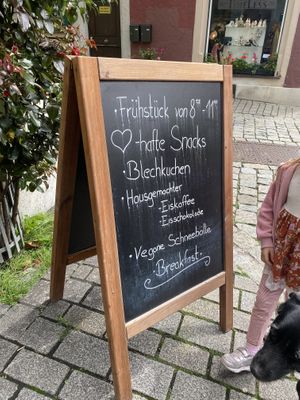 • Frühstück von 8⁰⁰-11⁰⁰
♡-hafte Snacks
• Blechkuchen
• Hausgemachter
- Eiskaffee
- Eisschokolade
• Vegane Schneebälle
Breakfast